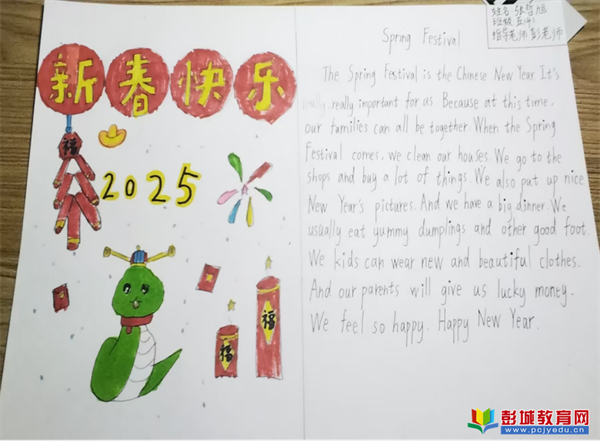 新春快乐
福
2025
福
福
Spring Festival
The Spring Festival is the Chinese New Year. It's
really, really important for us. Because at this time,
our families can all be together. When the Spring
Festival comes, we clean our houses. We go to the
shops and buy a lot of things. We also put up nice
New Year's pictures. And we have a big dinner. We
usually eat yummy dumplings and other good foot.
We kids can wear new and beautiful clothes.
And our parents will give us lucky money.
We feel so happy. Happy New Year.
姓名 张哲旭
班级 五(4)
指导老师 彭老师
彭城教育网
www.pcjyedu.cn